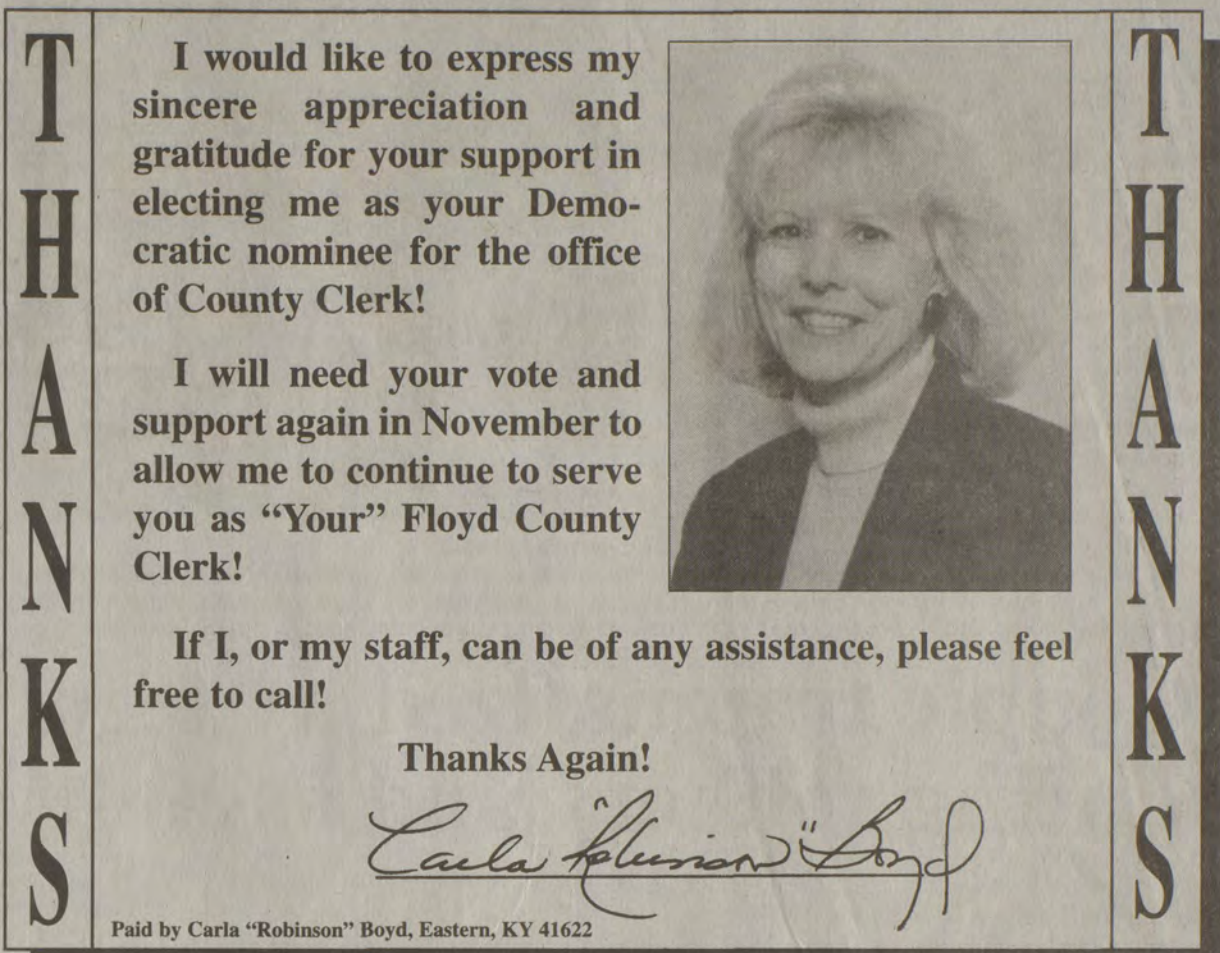 THANKS
I would like to express my
sincere appreciation and
gratitude for your support in
electing me as your Demo-
cratic nominee for the office
of County Clerk!
I will need your vote and
support again in November to
allow me to continue to serve
you as “Your” Floyd County
Clerk!
If I, or my staff, can be of any assistance, please feel
free to call!
Thanks Again!
Carla "Robinson" Boyd
Paid by Carla “Robinson” Boyd, Eastern, KY 41622
THANKS